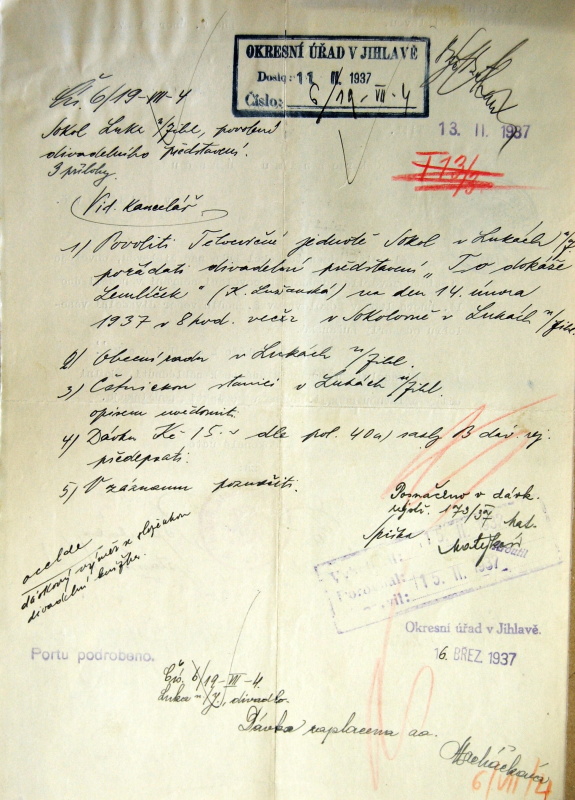 OKRESNÍ ÚŘAD V JIHLAVĚ
Došlo: 11 II 1937
Číslo: 6/19-VII-4
Čís. 6/19-VIII-4
13. II. 1937
Sokol Luka n/Jihl., povolení
divadelního představení.
3 přílohy.
I 13/2
Vid. kancelář
1) Povoliti Tělocvičné jednotě Sokol v Lukách n/J.
pořádati divadelní představení „To dokáže
Lemlíček" (X. Lužanská) na den 14. února
1937 v 8 hod. večer v Sokolovně v Lukách n/Jihl.
2) Obecní radu v Lukách n/Jihl.
3) Četnickou stanici v Lukách n/Jihl.
opisem uvědomiti.
4) Dávku Kč 15.- dle pol. 40a) sazby B dáv. rej.
předepsati.
5) V záznamu poznačiti.
Poznačeno v dávk.
rejstř. 173/37 Mat.
15. II. 1937
dávkový výměr s
divadelní
Okresní úřad v Jihlavě.
16. BŘEZ. 1937
Portu podrobeno.
Čís. 6/19-VIII-4.
Luka n/J., divadlo.
Dávka zaplacena aa.
Macháčková
6/VII/4